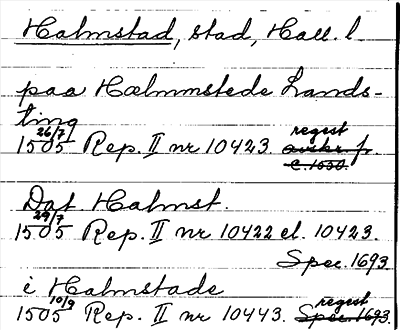 Halmstad, stad, Hall. l.
paa Hælmmstede Lands-
ting
26/7 regest
1505 Rep. II nr 10423. avskr. f.
c. 1550.
Dat. Halmst.
29/7
1505 Rep. II nr 10422 el. 10423.
Spec. 1693.
i Halmstade
10/9 regest
1505 Rep. II nr 10443. Spec. 1693.